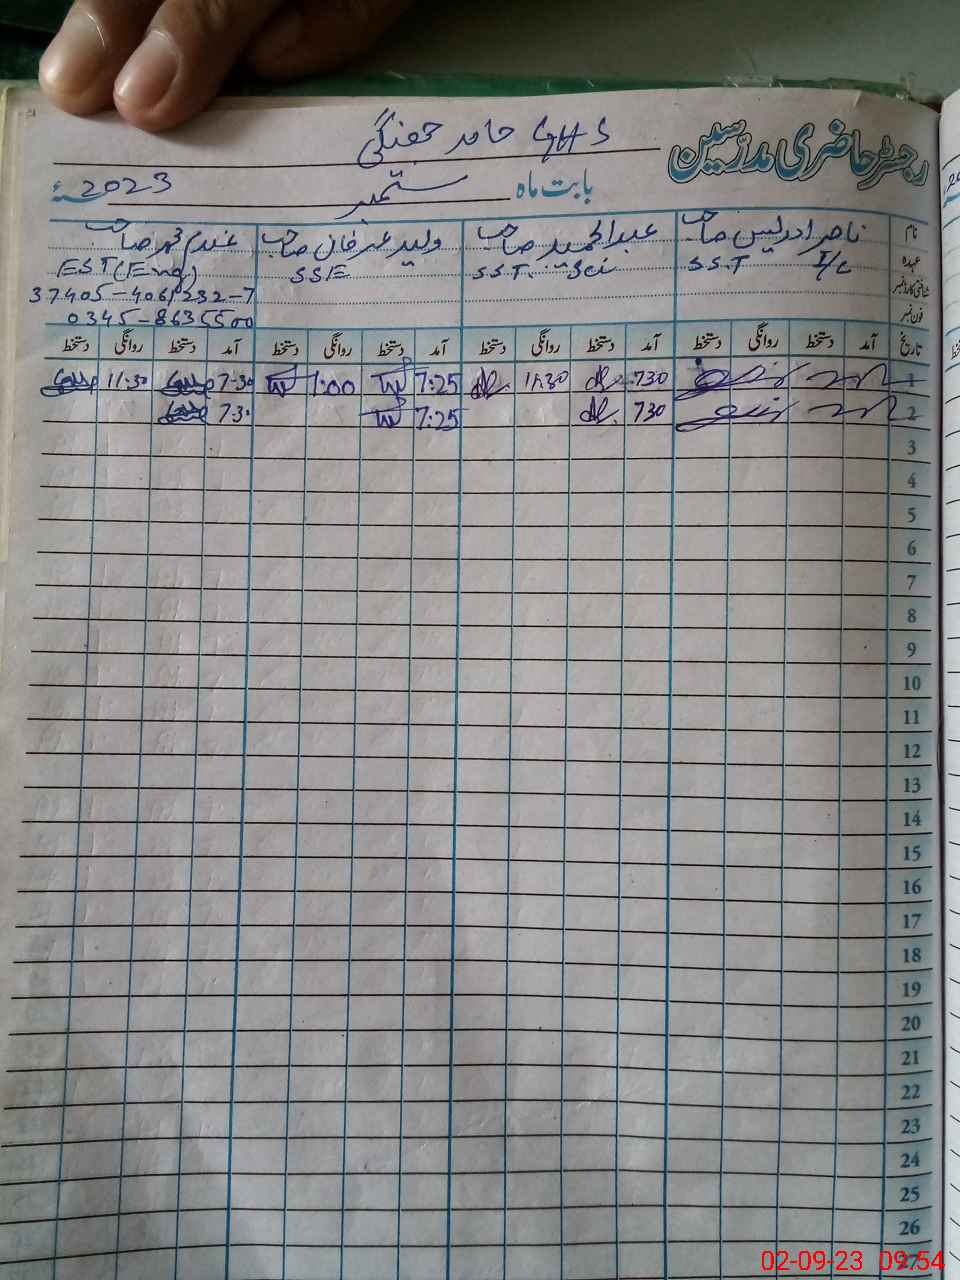 رجسٹر حاضری مدرسین
GHS حامد جھنگی
بابت ماہ ستمبر 2023ء
نام ناصر ادریس صاحب عبدالحمید صاحب ولید عرفان صاحب
عہدہ S.S.T I/C S.S.T. Sci SSE EST(Eng)
شناختی کارڈ نمبر 37405-4061232-7
فون نمبر 0345-8635500
تاریخ آمد دستخط روانگی دستخط آمد دستخط روانگی دستخط آمد دستخط روانگی دستخط آمد دستخط روانگی دستخط
1 730 11:30 7:25 1:00 7-30 11:30
2 730 7:25 7-30
3
4
5
6
7
8
9
10
11
12
13
14
15
16
17
18
19
20
21
22
23
24
25
26
27
02-09-23 09:54